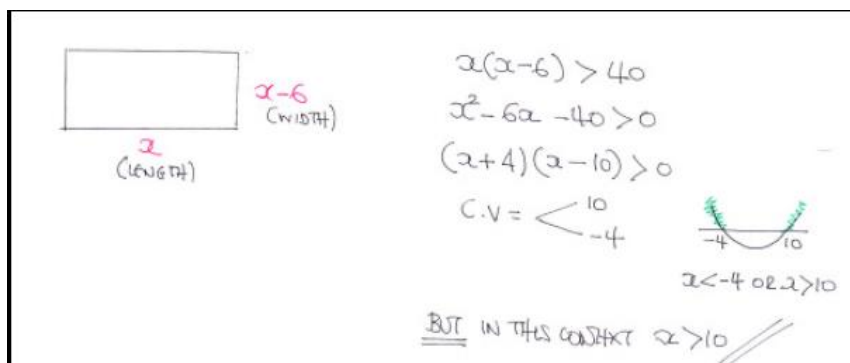 x-6
(WIDTH)
x
(LENGTH)
x(x-6) > 40
x²-6x -40 > 0
(x+4)(x-10) > 0
C.V = < 10
-4
-4 10
x<-4 OR x>10
BUT IN THIS CONTEXT x >10